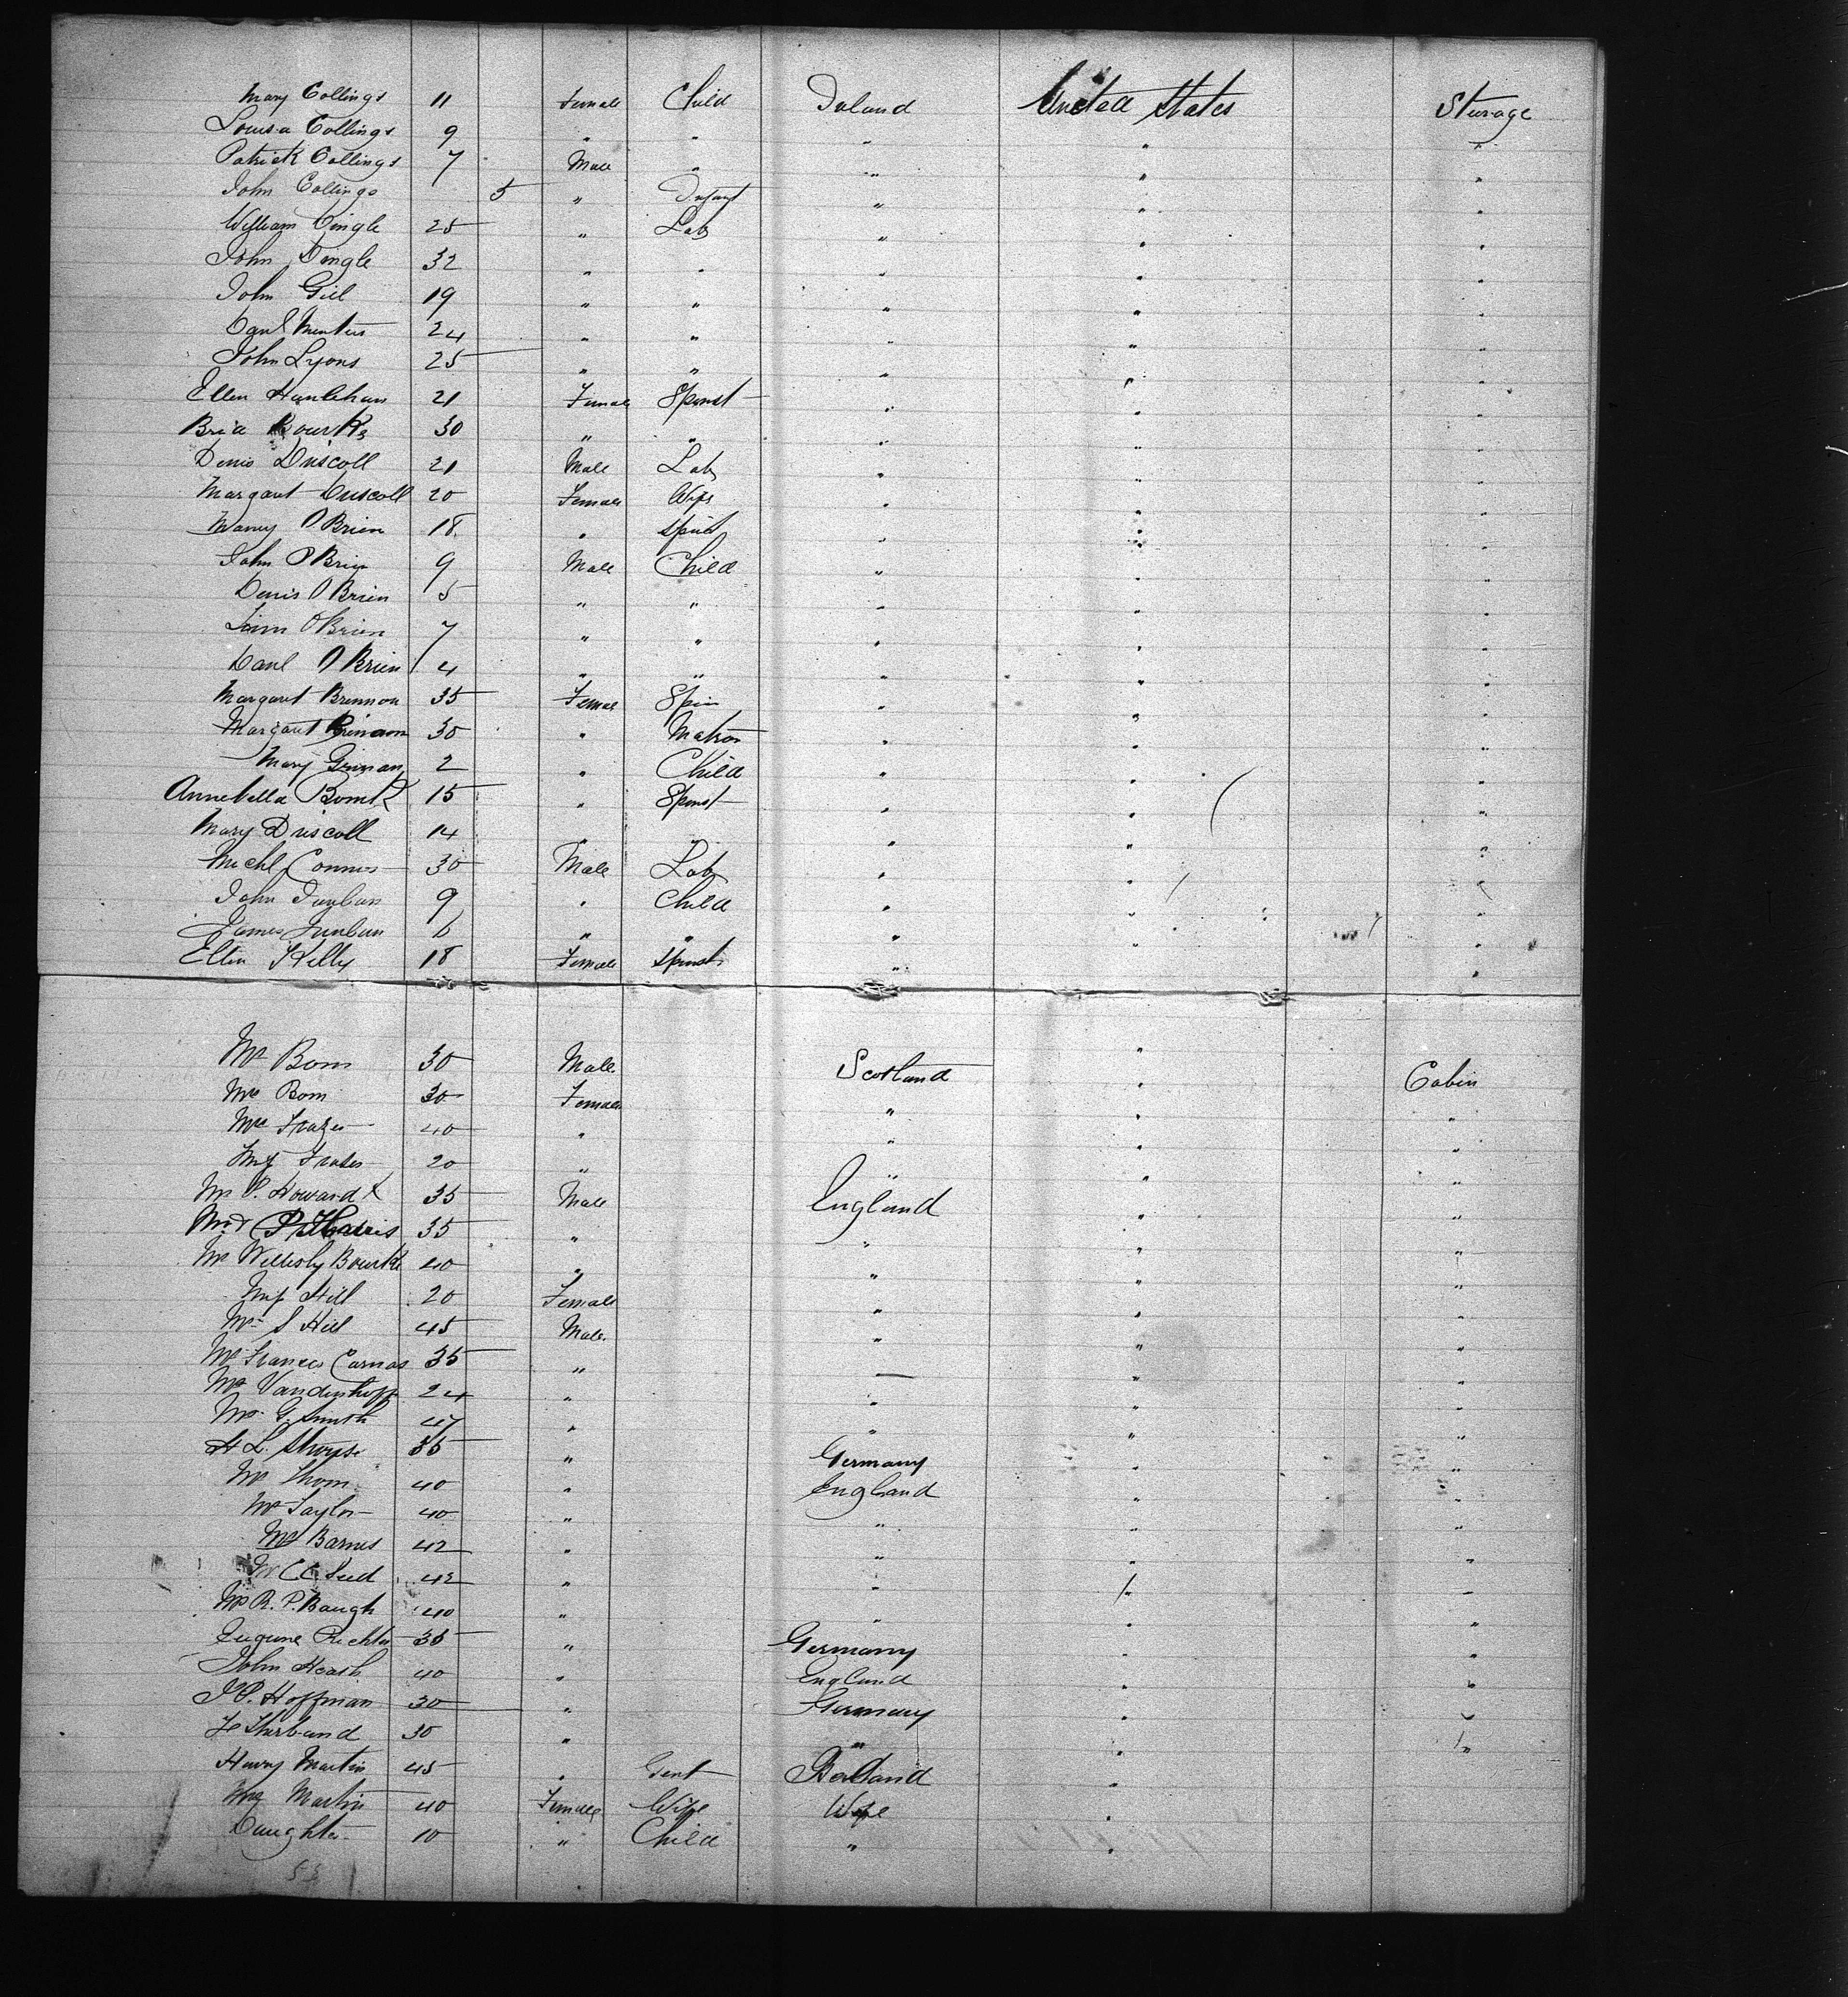 Mary Collings 11 Female Child Ireland United States Sterage
Louisa Collings 9 " " " " "
Patrick Collings 7 Male " " " "
John Collings 5 " Infant " " "
William Dingle 25 " Lab " " "
John Dingle 32 " " " " "
John Gill 19 " " " " "
Danl 24 " " " " "
John Lyons 25 " " " " "
Ellen Hanlihan 21 Female Spinst " " "
Brid Bourke 30 " " " " "
Denis Driscoll 21 Male Lab " " "
Margaret Driscoll 20 Female Wife " " "
O'Brien 18 " Spinst " " "
John O'Brien 9 Male Child " " "
Denis O'Brien 5 " " " " "
O'Brien 7 " " " " "
Danl O'Brien 4 " " " " "
Margaret Brennon 35 Female Spin " " "
Margaret 30 " Matron " " "
Mary 2 " Child " " "
Annebella 15 " Spinst " " "
Mary Driscoll 14 " " " " "
Michl Connors 30 Male Lab " " "
John 9 " Child " " "
James 6 " " " " "
Ellen Kelly 18 Female Spinst " " "
Mr 30 Male Scotland " Cabin
Mrs 30 Female " " "
Mrs Frazer 40 " " " "
Frazer 20 " " " "
Mr P. Howard 35 Male England " "
35 " " " "
Mr Wellesly Bourke 40 " " " "
Hill 20 Female " " "
Mr S Hill 45 Male " " "
Mr Frances 35 " — " "
Mr Vandenhoff 24 " " " "
Mr G. Smith 47 " " " "
H L. 35 " Germany " "
Mr Thom 40 " England " "
Mr Taylor 40 " " " "
Mr Barnes 42 " " " "
Mr C C 42 " " " "
Mr R. P. Baugh 40 " " " "
Eugene Richter 35 " Germany " "
John Heash 40 " England " "
J P. Hoffman 30 " Germany " "
30 " " " "
Henry Martin 45 " Gent "
Mrs Martin 40 Female Wife Wife "
Daughter 10 " Child " "
53